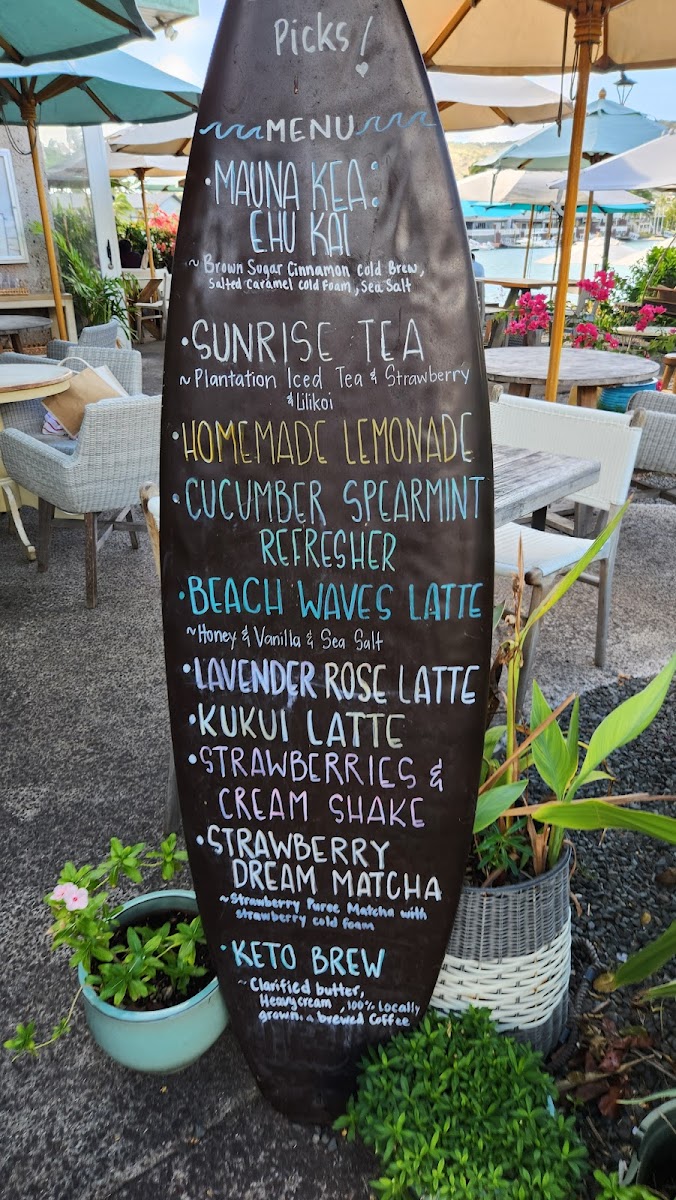 Picks!
MENU
• MAUNA KEA:
EHU KAI
~ Brown Sugar Cinnamon Cold Brew,
Salted Caramel Cold Foam, Sea Salt
• SUNRISE TEA
~ Plantation Iced Tea & Strawberry
& Lilikoi
• HOMEMADE LEMONADE
• CUCUMBER SPEARMINT
REFRESHER
• BEACH WAVES LATTE
~ Honey & Vanilla & Sea Salt
• LAVENDER ROSE LATTE
• KUKUI LATTE
• STRAWBERRIES &
CREAM SHAKE
• STRAWBERRY
DREAM MATCHA
~ Strawberry Puree Matcha with
strawberry cold foam
• KETO BREW
~ Clarified butter,
Heavy cream, 100% locally
grown & brewed Coffee